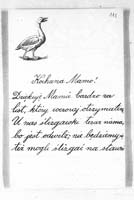 Kochana Mamo!
Dziękuję Mamie bardzo za
list, który wczoraj otrzymałem.
U nas ślizgawki teraz niema,
bo jest odwilż, nie będziemy
też mogli ślizgać na stawie